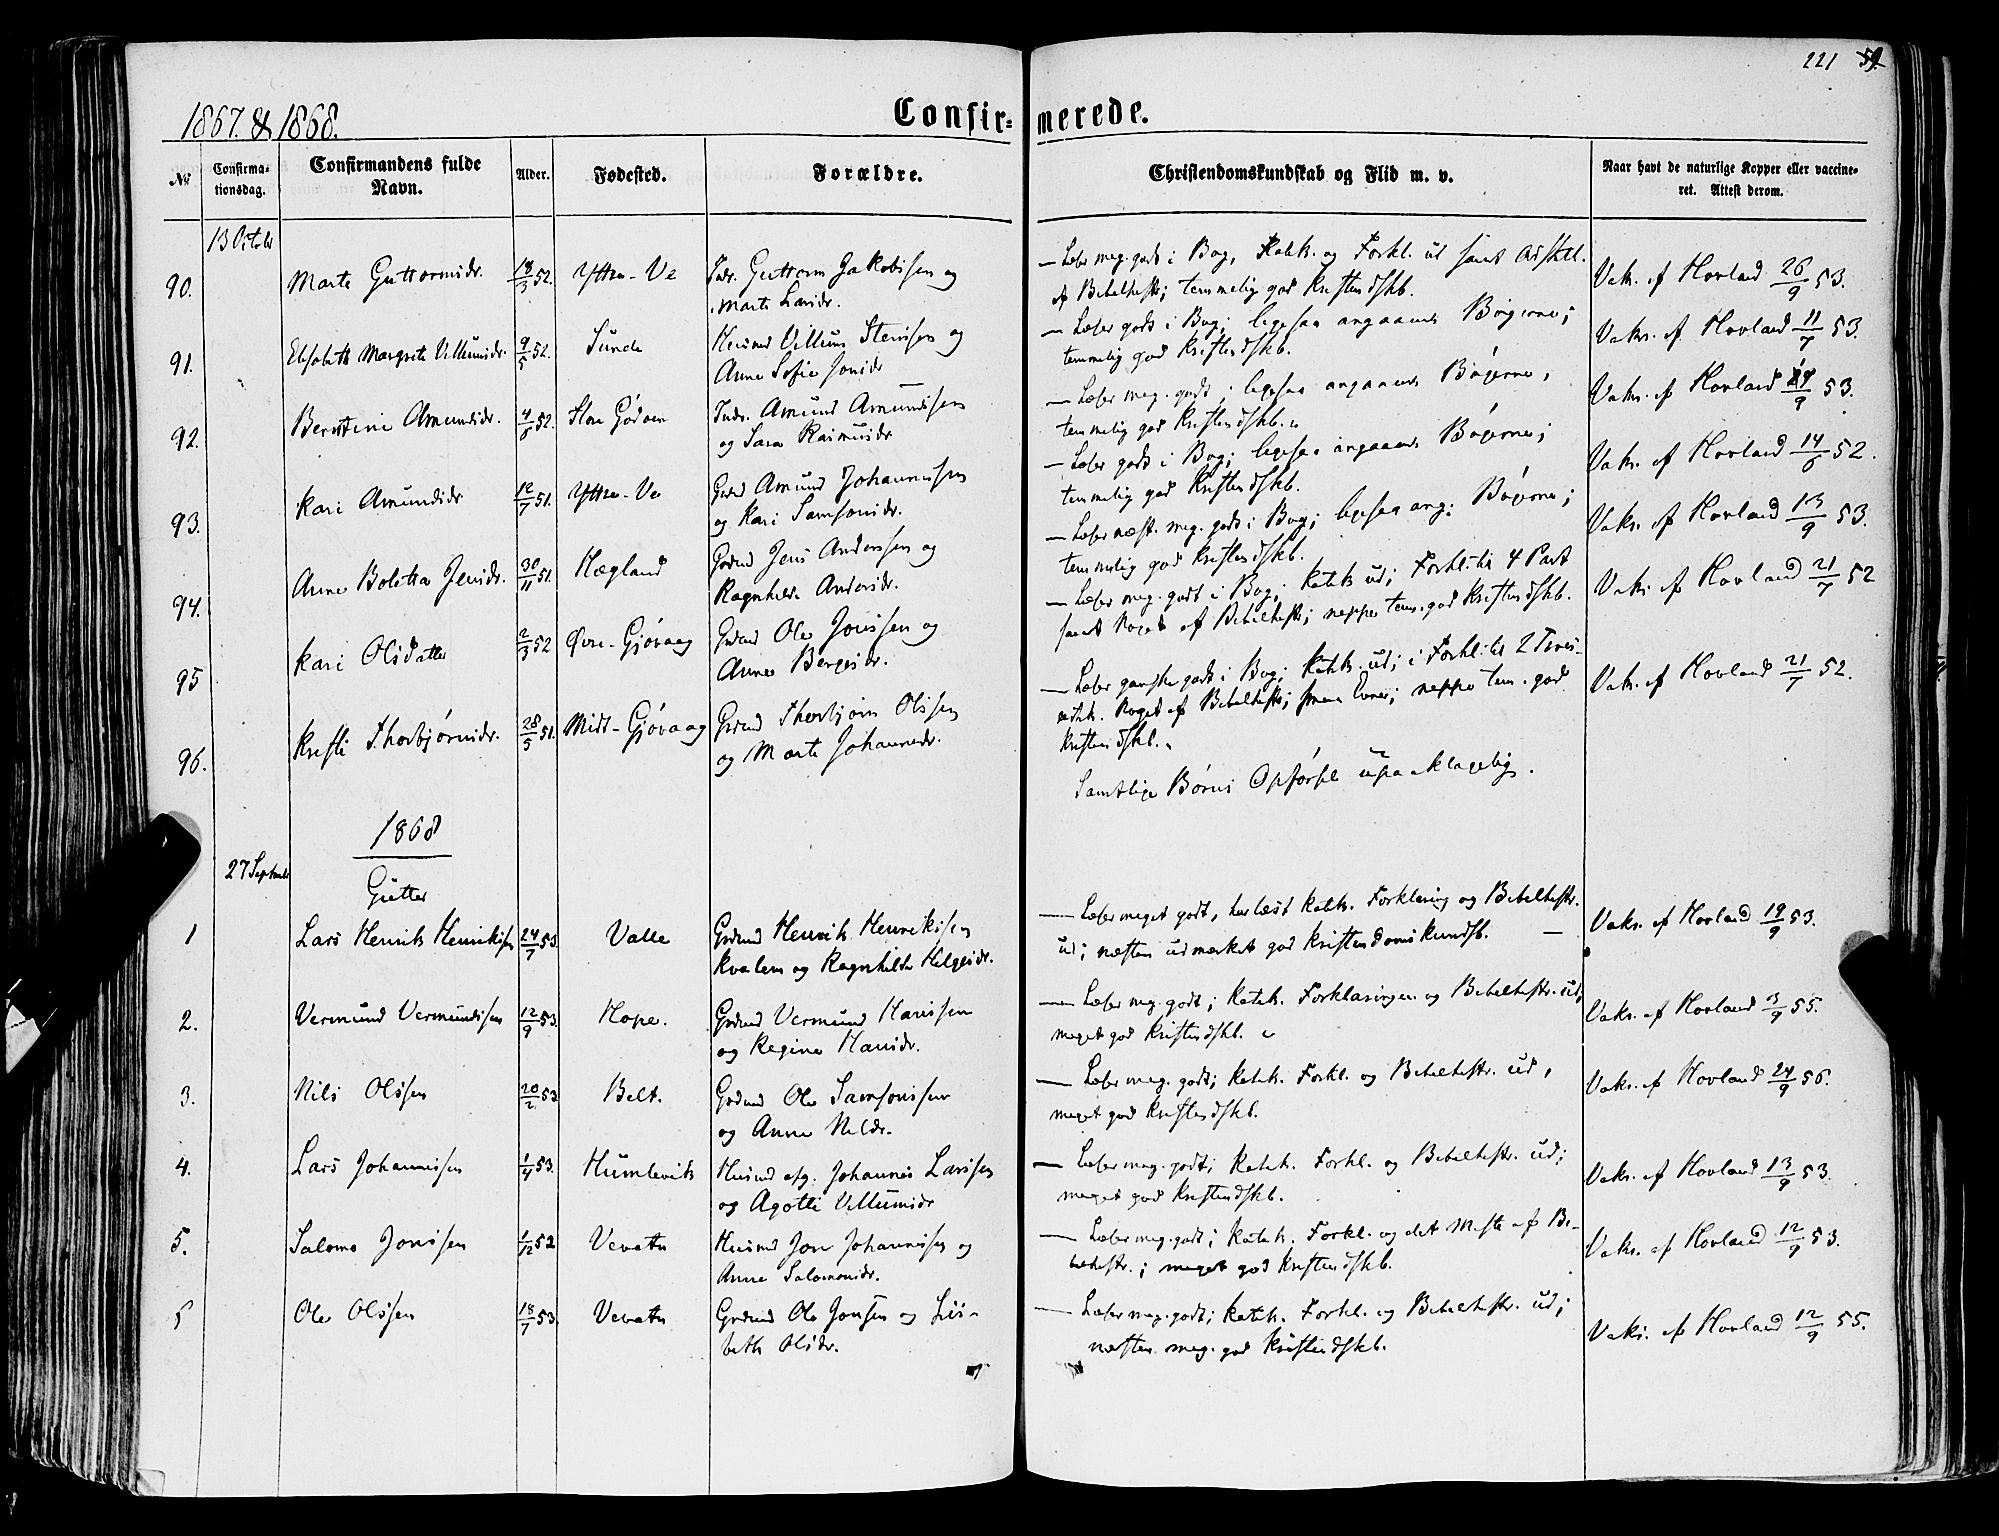 221 59.
1867 & 1868.
Confirmerede.
No
Confirmationsdag.
Confirmandens fulde Navn.
Alder.
Fødested.
Forældre.
Christendomskundskab og Flid m. v.
Naar havt de naturlige Kopper eller vaccineret. Attest derom.
13 Octobr
90. Marta Guttormsdr. 18/3 52. Yttre-Ve Guttorm Jakobsen og
Marta Larsdr.
— Læser meg. godt i Bog, Katek. og Forkl. ud samt Adskil.
af Bibelhist.; temmelig god Kristendskb.
Vaks. af Hovland 26/9 53.
91. Elisabeth Margrete Villumsdr. 9/5 52. Sunde Husmd Villum Stensen og
Anne Sofie Jonsdr
— Læser godt i Bog; ligesaa angaaende Bøgerne;
temmelig god Kristendskb.
Vaks. af Hovland 11/7 53.
92. Berntine Amundsdr. 4/6 52. Store Godøen Indr. Amund Amundsen
og Sara Rasmusdr
— Læser meg. godt; ligesaa angaaende Bøgerne,
temmelig god Kristendskb.
Vaks. af Hovland 53.
93. Kari Amundsdr 12/7 51. Yttre-Ve Grdmd Amund Johannessen
og Kari Samsonsdr.
— Læser godt i Bog; ligesaa angaaend. Bøgerne;
temmelig god Kristendskb.
Vaks. af Hovland 14/6 52.
94. Anne Boletta Jensdr. 30/11 51. Hægland Grdmd Jens Andersen og
Ragnhilde Andersdr.
— Læser næst. meg. godt i Bog; ligesaa ang. Bøgerne;
temmelig god Kristendskb.
Vaks. af Hovland 13/9 53.
95 Kari Olsdatter 2/3 52 Øvre-Gjøvaag Grdmd Ole Jonssen og
Anna Bergesdr.
— Læser meg. godt i Bog; Katek ud; Forkl. til 4 Part
samt Noget af Bibelhist; neppe tem. god Kristendskb.
Vaks. af Hovland 21/7 52
96. Kristi Thorbjørnsdr. 28/5 51. Midt-Gjøvaag Grdmd Thorbjørn Olssen
og Marta Johannesdr.
— Læser ganske godt i Bog; Katek. ud; i Forkl. til 2 Troes-
artik. Noget af Bibelhist; smaa Evner; neppe tem. god
Kristendskb.
Vaks. af Hovland 21/7 52.
Samtlige Børns Opførsel upaaklagelig.
1868
27 Septembr
Gutter
1 Lars Henrik Henriksen 24/7 53. Valle Grdmd Henrik Henriksen
Kvalem og Ragnhilda Helgesdr.
— Læser meget godt, har læst Katek. Forklaring og Bibelhistr.
ud; næsten udmærket god Kristendomskundsk. —
Vaks. af Hovland 19/9 53.
2. Vermund Vermundsen 12/9 53. Hope. Grdmd Vermund Hanssen
og Regine Hansdr.
— Læser meg. godt; Katek. Forklaringen og Bibelhistr. ud;
meget god Kristendskb.
Vaks. af Hovland 3/9 55.
3. Nils Olssen 20/2 53 Belt. Grdmd Ole Samsonssen
og Anne Nilsdr.
— Læser meg. godt; Katek. Forkl. og Bibelhistr. ud,
meget god Kristendskb.
Vaks. af Hovland 24/9 56.
4. Lars Johannessen 1/4 53. Humlevik Husmd afg. Johannes Larssen
og Agatte Villumsdr
— Læser meg. godt; Katek. Forkl. og Bibelhistr. ud;
meget god Kristendskb.
Vaks. af Hovland 13/9 53.
5. Salomo Jonssen 1/12 52 Vevatn Husmd Jon Johannessen og
Anne Salomonsdr.
— Læser meg. godt; Katek. Forkl. og det Meste af Bi-
belhistr.; meget god Kristendskb.
Vaks. af Hovland 12/9 53.
Ole Olssen 18/7 53. Vevatn Grdmd Ole Jonsen og Lis-
beth Olsdr.
— Læser meg. godt; Katek. Forkl. og Bibelhistr. ud;
næsten meg. god Kristendskb.
Vaks. af Hovland 12/9 55.